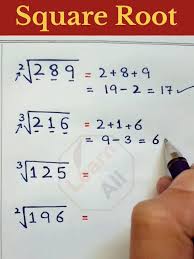 Square Root
²√289 = 2+8+9
= 19-2 = 17 ✓
³√216 = 2+1+6
= 9-3 = 6
³√125 =
²√196 =
Learn
Ali